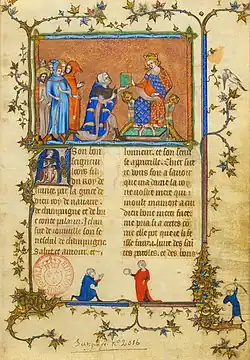 A son bon
seigneur
looys filz
du Roy de
france. par la grace de
dieu roy de nauarre. de
champaigne et de brie
conte palatin. Jehan
sire de ioinuille son se
neschal de champaigne
Salut et amour. et
honneur. et son serui
ce appareille. Chier sire
ie vous foiz a sauoir
que ma dame la roy
ne vostre mere qui
moult mamoit a cui
dieu bone merci face
me pria si a certes co
me elle pot que ie li feis
se faire .i. liure des sai
tes paroles. et des bons
Supp. n.º 2016